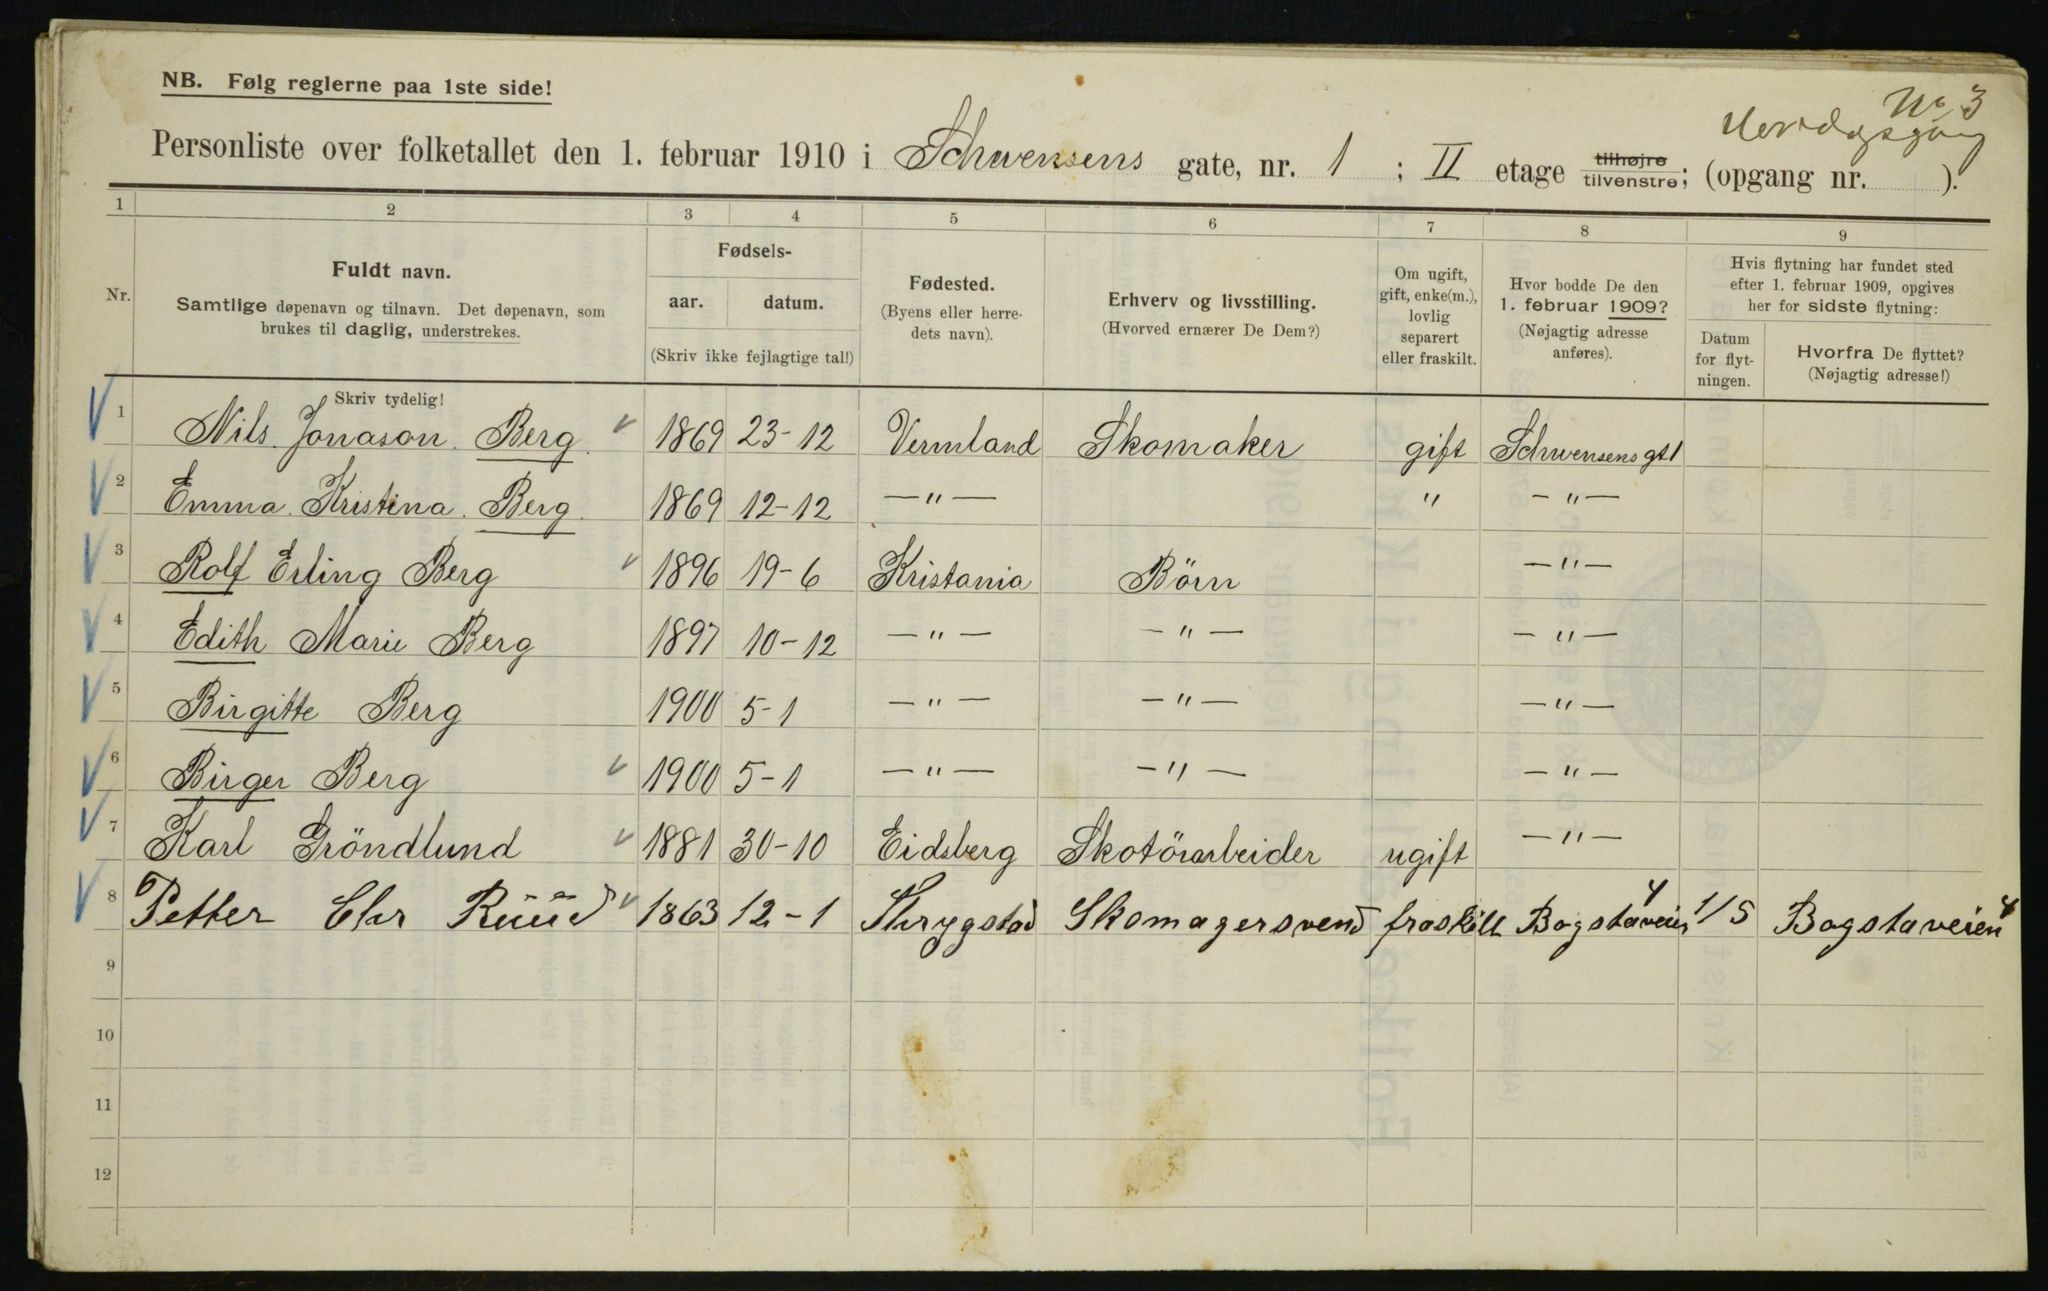 NB. Følg reglerne paa 1ste side!
No 3
Personliste over folketallet den 1. februar 1910 i Schwensens gate, nr. 1 ; II etage tilhøjre tilvenstre; (opgang nr. ).
1 2 3 4 5 6 7 8 9
Nr.
Fuldt navn.
Samtlige døpenavn og tilnavn. Det døpenavn, som
brukes til daglig, understrekes.
Skriv tydelig!
Fødsels-
aar. datum.
(Skriv ikke fejlagtige tal!)
Fødested.
(Byens eller herre-
dets navn).
Erhverv og livsstilling.
(Hvorved ernærer De Dem?)
Om ugift,
gift, enke(m.),
lovlig
separert
eller fraskilt.
Hvor bodde De den
1. februar 1909?
(Nøjagtig adresse
anføres).
Hvis flytning har fundet sted
efter 1. februar 1909, opgives
her for sidste flytning:
Datum
for flyt-
ningen.
Hvorfra De flyttet?
(Nøjagtig adresse!)
1 Nils. Jonason. Berg. 1869 23-12 Vermland Skomaker gift Schwensens gt 1
2 Emma. Kristina. Berg. 1869 12-12 —"— " —"—
3 Rolf Erling Berg 1896 19-6 Kristania Börn —"—
4 Edith Marie Berg 1897 10-12 —"— —"— —"—
5 Birgitte Berg 1900 5-1 —"— —"— —"—
6 Birger Berg 1900 5-1 —"— —"— —"—
7 Karl Gröndlund 1881 30-10 Eidsberg Skotörarbeider ugift —"—
8 Petter Chr Ruud 1863 12-1 Skomagersvend fraskilt Bogstaveien 4 1/5 Bogstaveien 4
9
10
11
12